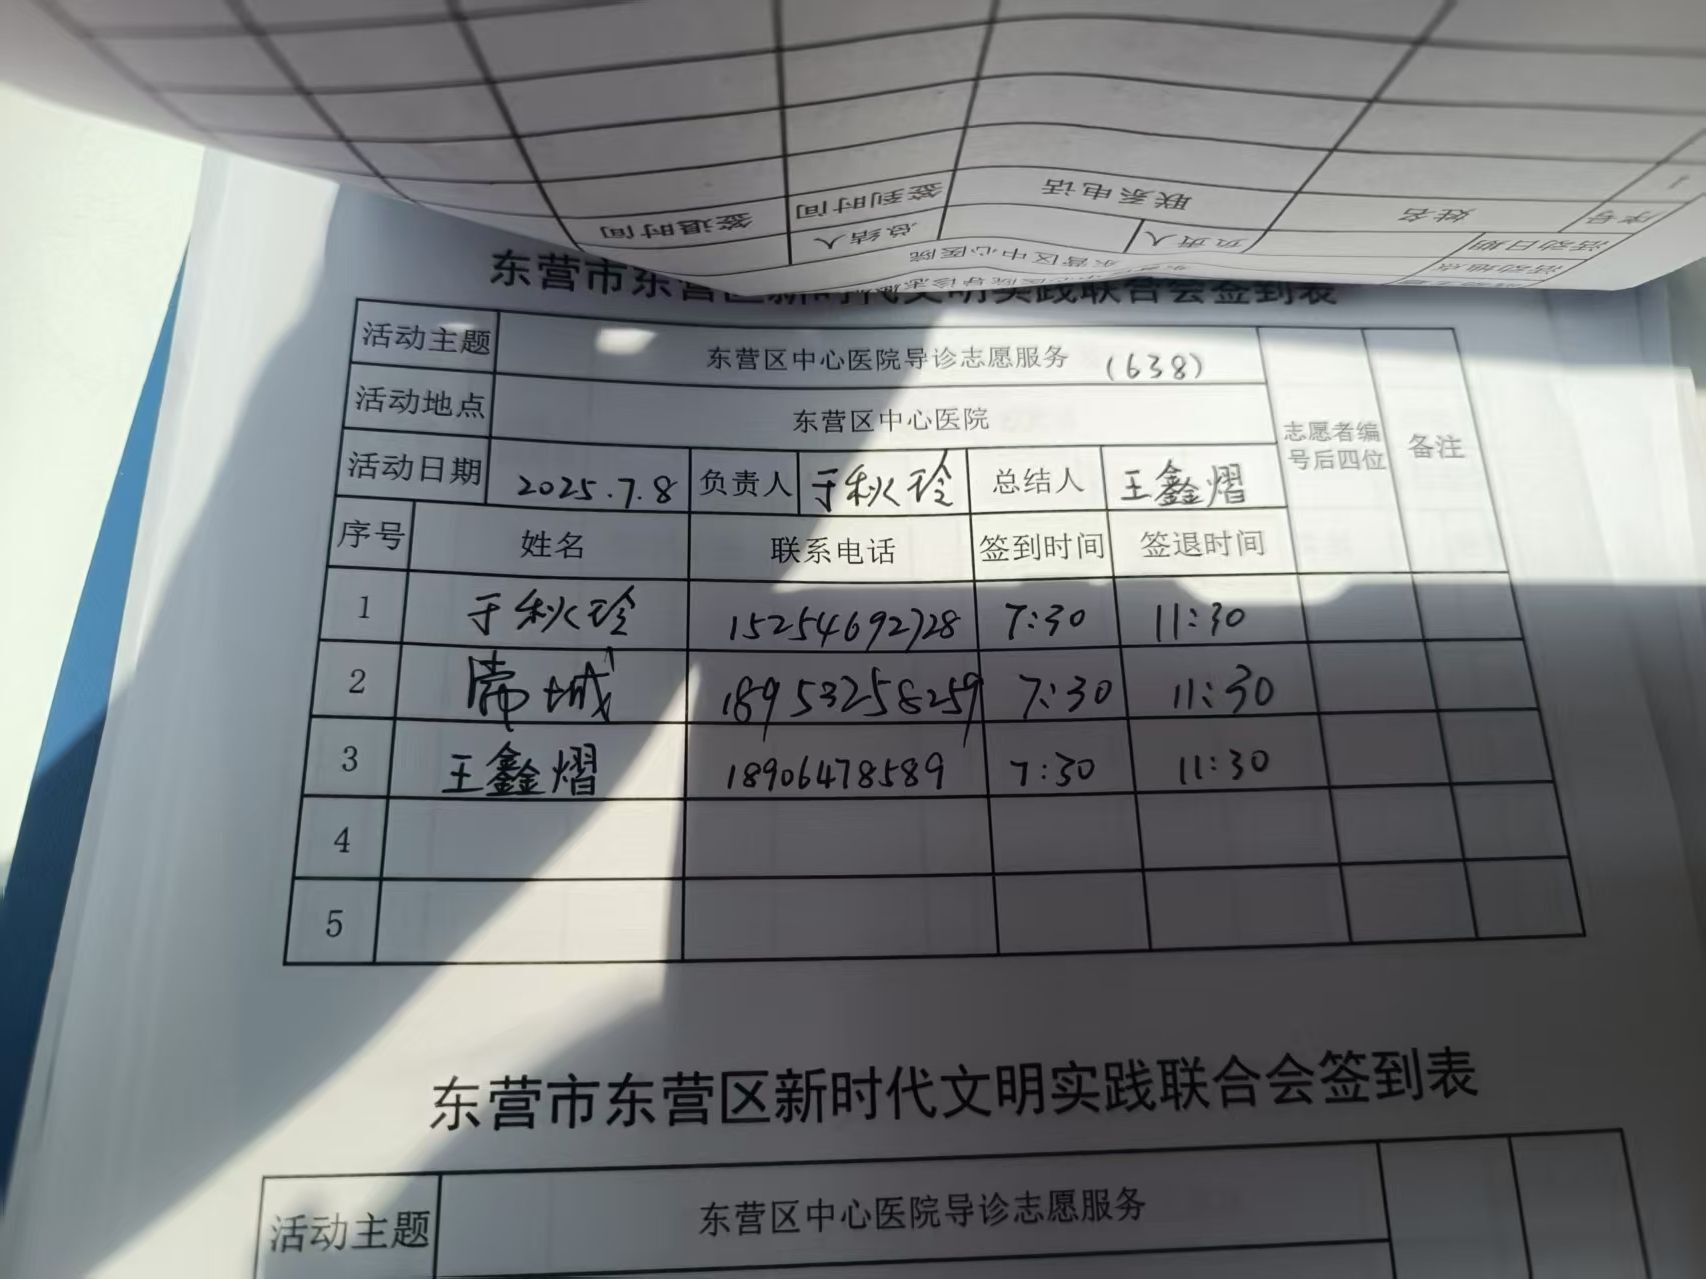 签退时间 签到时间 联系电话 姓名 序号
总结人 负责人 活动日期
东营区中心医院 活动地点
东营市东营区新时代文明实践联合会签到表
活动主题 东营区中心医院导诊志愿服务 (638) 志愿者编号后四位 备注
活动地点 东营区中心医院
活动日期 2025.7.8 负责人 于秋玲 总结人 王鑫熠
序号 姓名 联系电话 签到时间 签退时间
1 于秋玲 15254692728 7:30 11:30
2 城 18953258259 7:30 11:30
3 王鑫熠 18906478589 7:30 11:30
4
5
东营市东营区新时代文明实践联合会签到表
活动主题 东营区中心医院导诊志愿服务